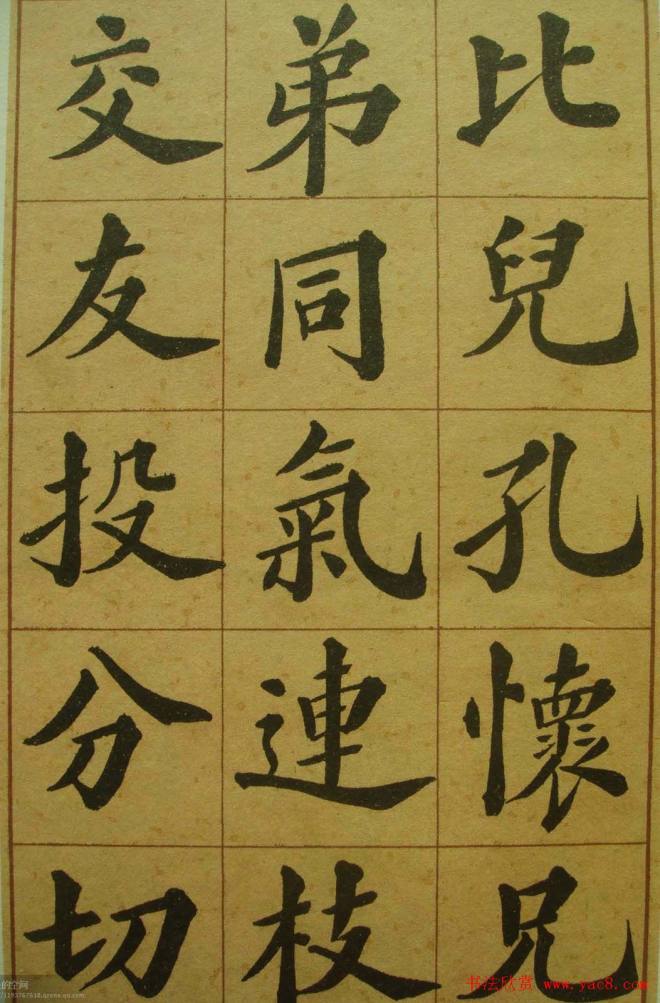 比兒孔懷兄
弟同氣連枝
交友投分切
的空间
书法欣赏 www.yac8.com